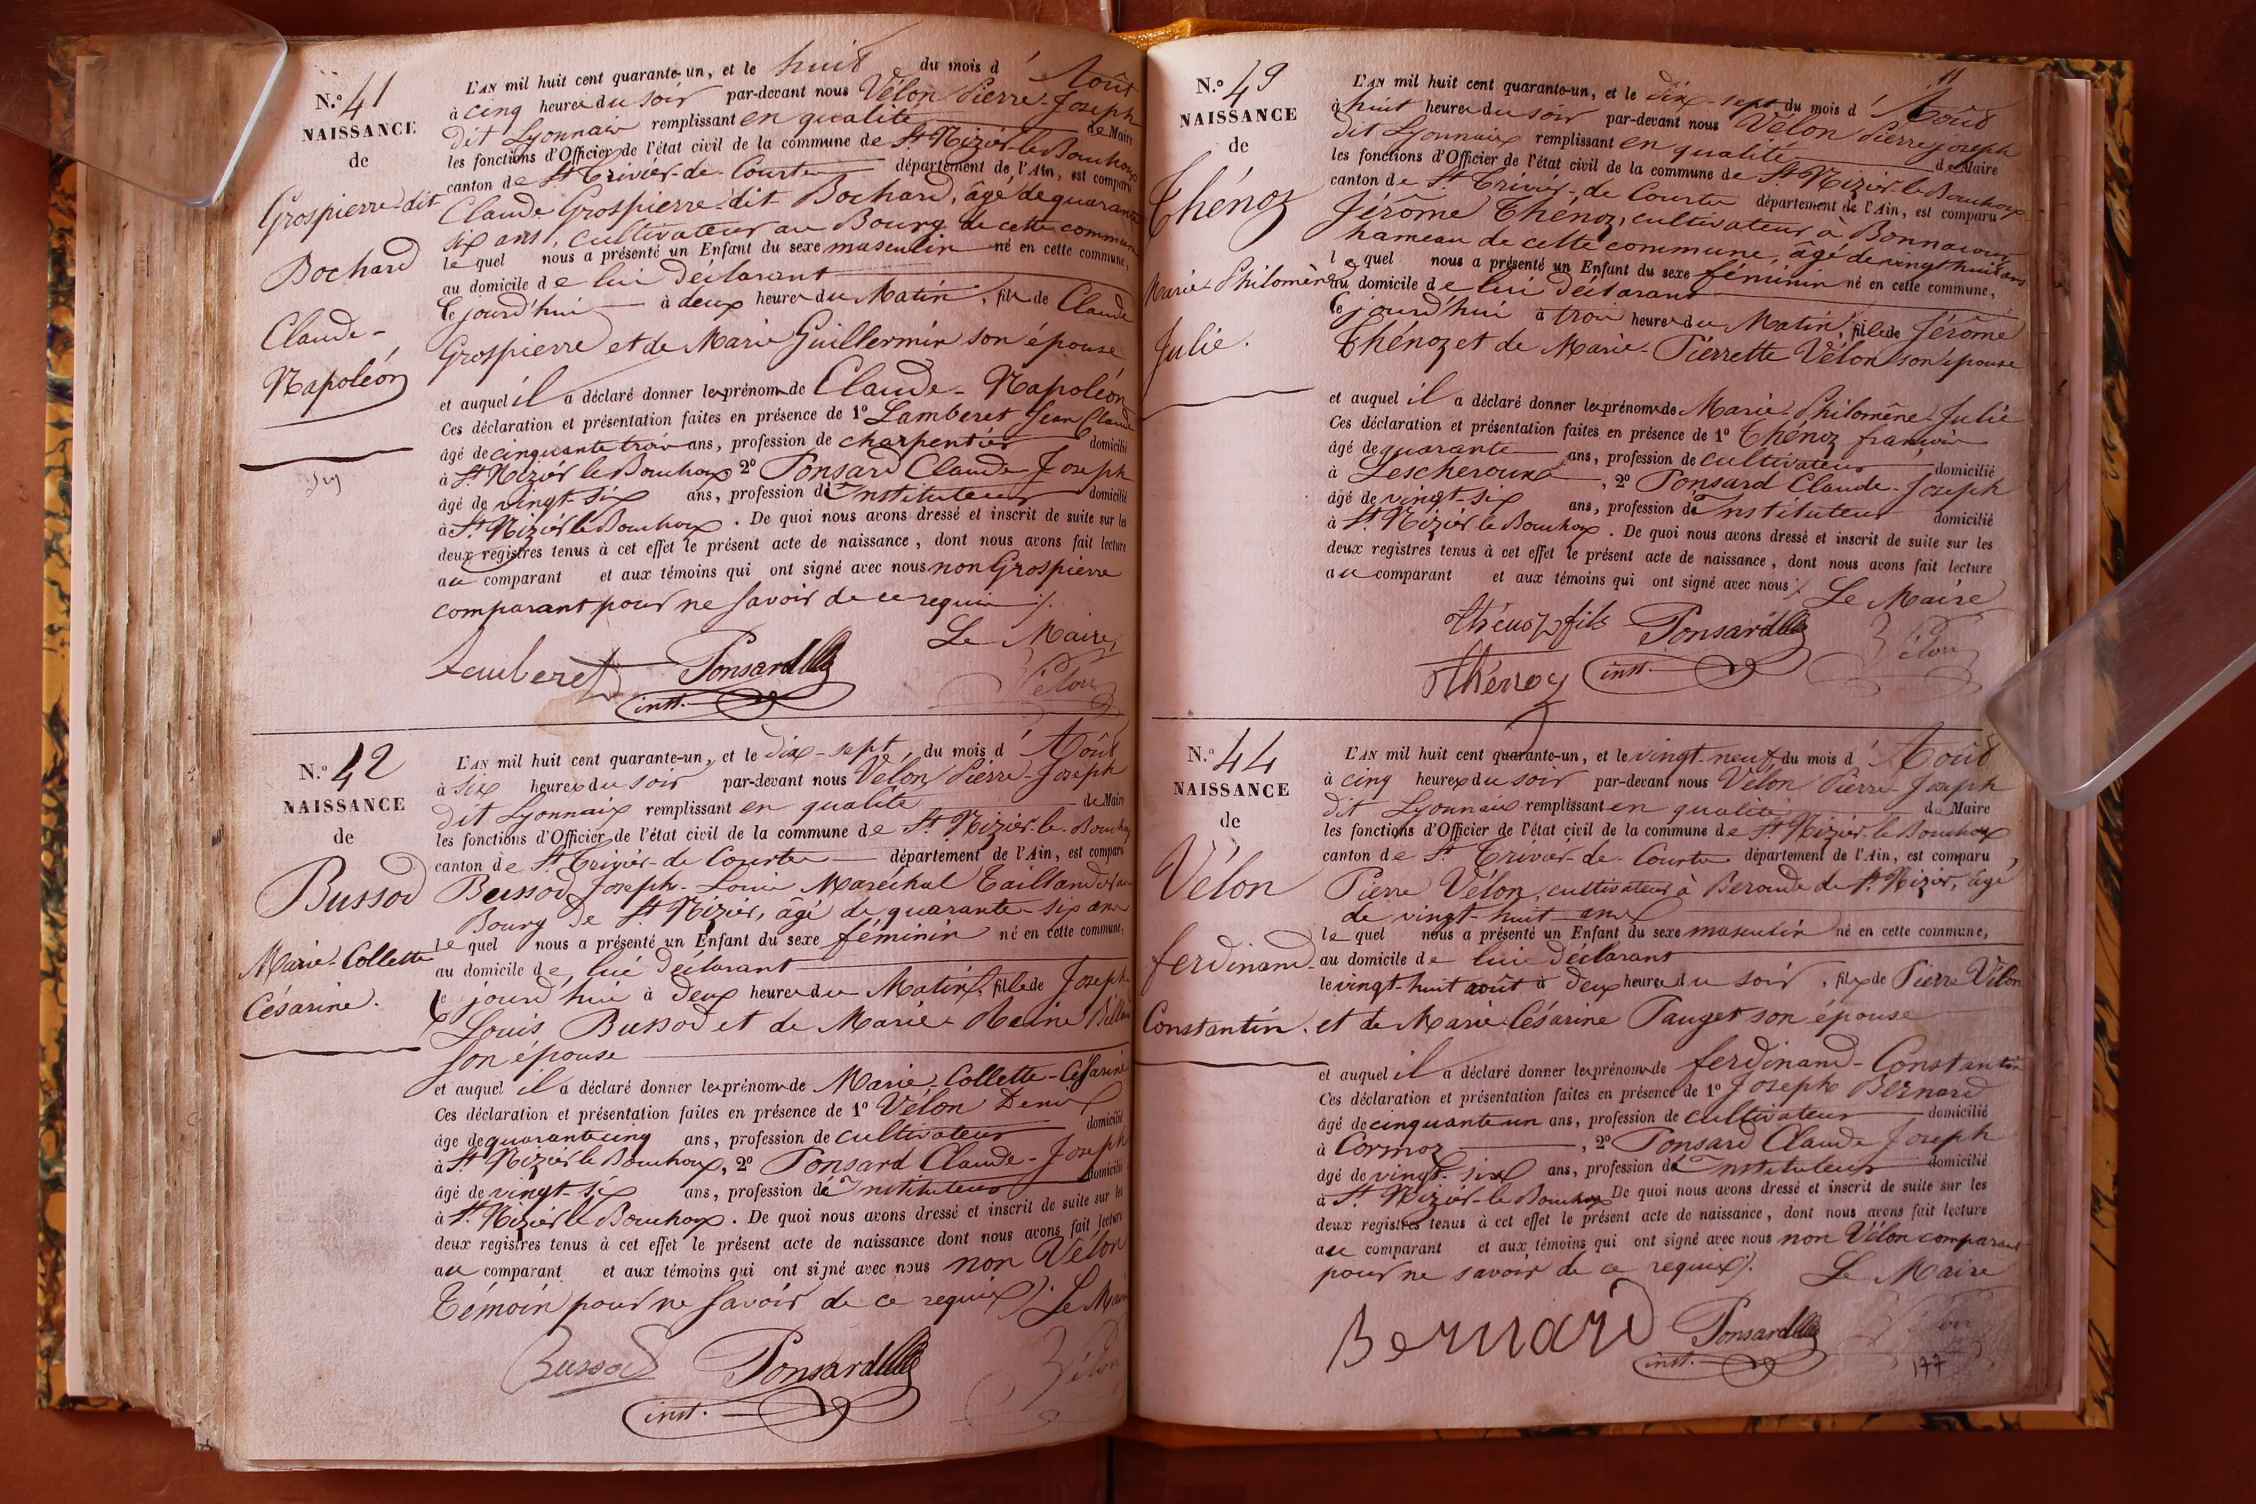 N.o 41
NAISSANCE
de
Grospierre dit
Bochard
Claude-
Napoléon
L'AN mil huit cent quarante-un, et le huit du mois d'Août
à cinq heures du soir par-devant nous Vélon Pierre-Joseph
dit Lyonnais remplissant en qualité de Maire
les fonctions d'Officier de l'état civil de la commune de St Nizier-le-Bouchoux
canton de St Trivier-de-Courtes département de l'Ain, est comparu
Claude Grospierre dit Bochard, âgé de quarante
six ans, cultivateur au Bourg de cette commune
le quel nous a présenté un Enfant du sexe masculin né en cette commune,
au domicile de lui déclarant
ce jourd'hui à deux heures du Matin, fils de Claude
Grospierre et de Marie Guillermin son épouse
et auquel il a déclaré donner les prénoms de Claude-Napoléon
Ces déclaration et présentation faites en présence de 1o Lamberet Jean Claude
âgé de cinquante trois ans, profession de charpentier domicilié
à St Nizier le Bouchoux 2o Ponsard Claude-Joseph
âgé de vingt-six ans, profession d'Instituteur domicilié
à St Nizier le Bouchoux. De quoi nous avons dressé et inscrit de suite sur les
deux registres tenus à cet effet le présent acte de naissance, dont nous avons fait lecture
au comparant et aux témoins qui ont signé avec nous non Grospierre
comparant pour ne savoir de ce requis ./.
Le Maire,
Lamberet Ponsard
inst. Vélon
N.o 42
NAISSANCE
de
Bussod
Marie-Collette
Césarine.
L'AN mil huit cent quarante-un, et le dix-sept, du mois d'Août
à six heures du soir par-devant nous Vélon Pierre-Joseph
dit Lyonnais remplissant en qualité de Maire
les fonctions d'Officier de l'état civil de la commune de St Nizier-le-Bouchoux
canton de St Trivier-de-Courtes département de l'Ain, est comparu
Bussod Joseph-Louis Maréchal Taillandier au
Bourg de St Nizier, âgé de quarante-six ans
le quel nous a présenté un Enfant du sexe féminin né en cette commune,
au domicile de lui déclarant
ce jourd'hui à deux heures du Matin, fille de Joseph
Louis Bussod et de Marie-Reine
son épouse
et auquel il a déclaré donner les prénoms de Marie-Collette-Césarine
Ces déclaration et présentation faites en présence de 1o Vélon Denis
âgé de quarante cinq ans, profession de cultivateur domicilié
à St Nizier le Bouchoux, 2o Ponsard Claude-Joseph
âgé de vingt-six ans, profession d'Instituteur domicilié
à St Nizier le Bouchoux. De quoi nous avons dressé et inscrit de suite sur les
deux registres tenus à cet effet le présent acte de naissance dont nous avons fait lecture
au comparant et aux témoins qui ont signé avec nous non Vélon
Témoin pour ne savoir de ce requis ./. Le Maire
Bussod Ponsard Vélon
inst.
11
N.o 43
NAISSANCE
de
Thénoz
Marie Philomène
Julie.
L'AN mil huit cent quarante-un, et le dix-sept du mois d'Août
à huit heures du soir par-devant nous Vélon Pierre joseph
dit Lyonnais remplissant en qualité de Maire
les fonctions d'Officier de l'état civil de la commune de St Nizier-le-Bouchoux
canton de St Trivier-de-Courtes département de l'Ain, est comparu
Jérôme Thénoz, cultivateur à
hameau de cette commune, âgé de vingt huit ans
le quel nous a présenté un Enfant du sexe féminin né en cette commune,
au domicile de lui déclarant
ce jourd'hui à trois heures du Matin, fille de Jérôme
Thénoz et de Marie-Pierrette Vélon son épouse
et auquel il a déclaré donner les prénoms de Marie-Philomène-Julie
Ces déclaration et présentation faites en présence de 1o Thénoz françois
âgé de quarante ans, profession de cultivateur domicilié
à Lescheroux, 2o Ponsard Claude-Joseph
âgé de vingt-six ans, profession d'Instituteur domicilié
à St Nizier le Bouchoux. De quoi nous avons dressé et inscrit de suite sur les
deux registres tenus à cet effet le présent acte de naissance, dont nous avons fait lecture
au comparant et aux témoins qui ont signé avec nous ./. Le Maire
thénoz fils Ponsard Vélon
thénoz inst.
N.o 44
NAISSANCE
de
Vélon
ferdinand-
Constantin.
L'AN mil huit cent quarante-un, et le vingt-neuf du mois d'Août
à cinq heures du soir par-devant nous Vélon Pierre Joseph
dit Lyonnais remplissant en qualité de Maire
les fonctions d'Officier de l'état civil de la commune de St Nizier-le Bouchoux
canton de St Trivier-de-Courtes département de l'Ain, est comparu,
Pierre Vélon, cultivateur à Beroude de St Nizier, âgé
de vingt-huit ans
le quel nous a présenté un Enfant du sexe masculin né en cette commune,
au domicile de lui déclarant
le vingt-huit août à deux heures du soir, fils de Pierre Vélon
et de Marie Césarine Pauget son épouse
et auquel il a déclaré donner les prénoms de ferdinand-Constantin
Ces déclaration et présentation faites en présence de 1o Joseph Bernard
âgé de cinquante un ans, profession de cultivateur domicilié
à Cormoz, 2o Ponsard Claude Joseph
âgé de vingt-six ans, profession d'Instituteur domicilié
à St Nizier-le Bouchoux De quoi nous avons dressé et inscrit de suite sur les
deux registres tenus à cet effet le présent acte de naissance, dont nous avons fait lecture
au comparant et aux témoins qui ont signé avec nous non Vélon comparant
pour ne savoir de ce requis ./. Le Maire
Bernard Ponsard Vélon
inst. 177